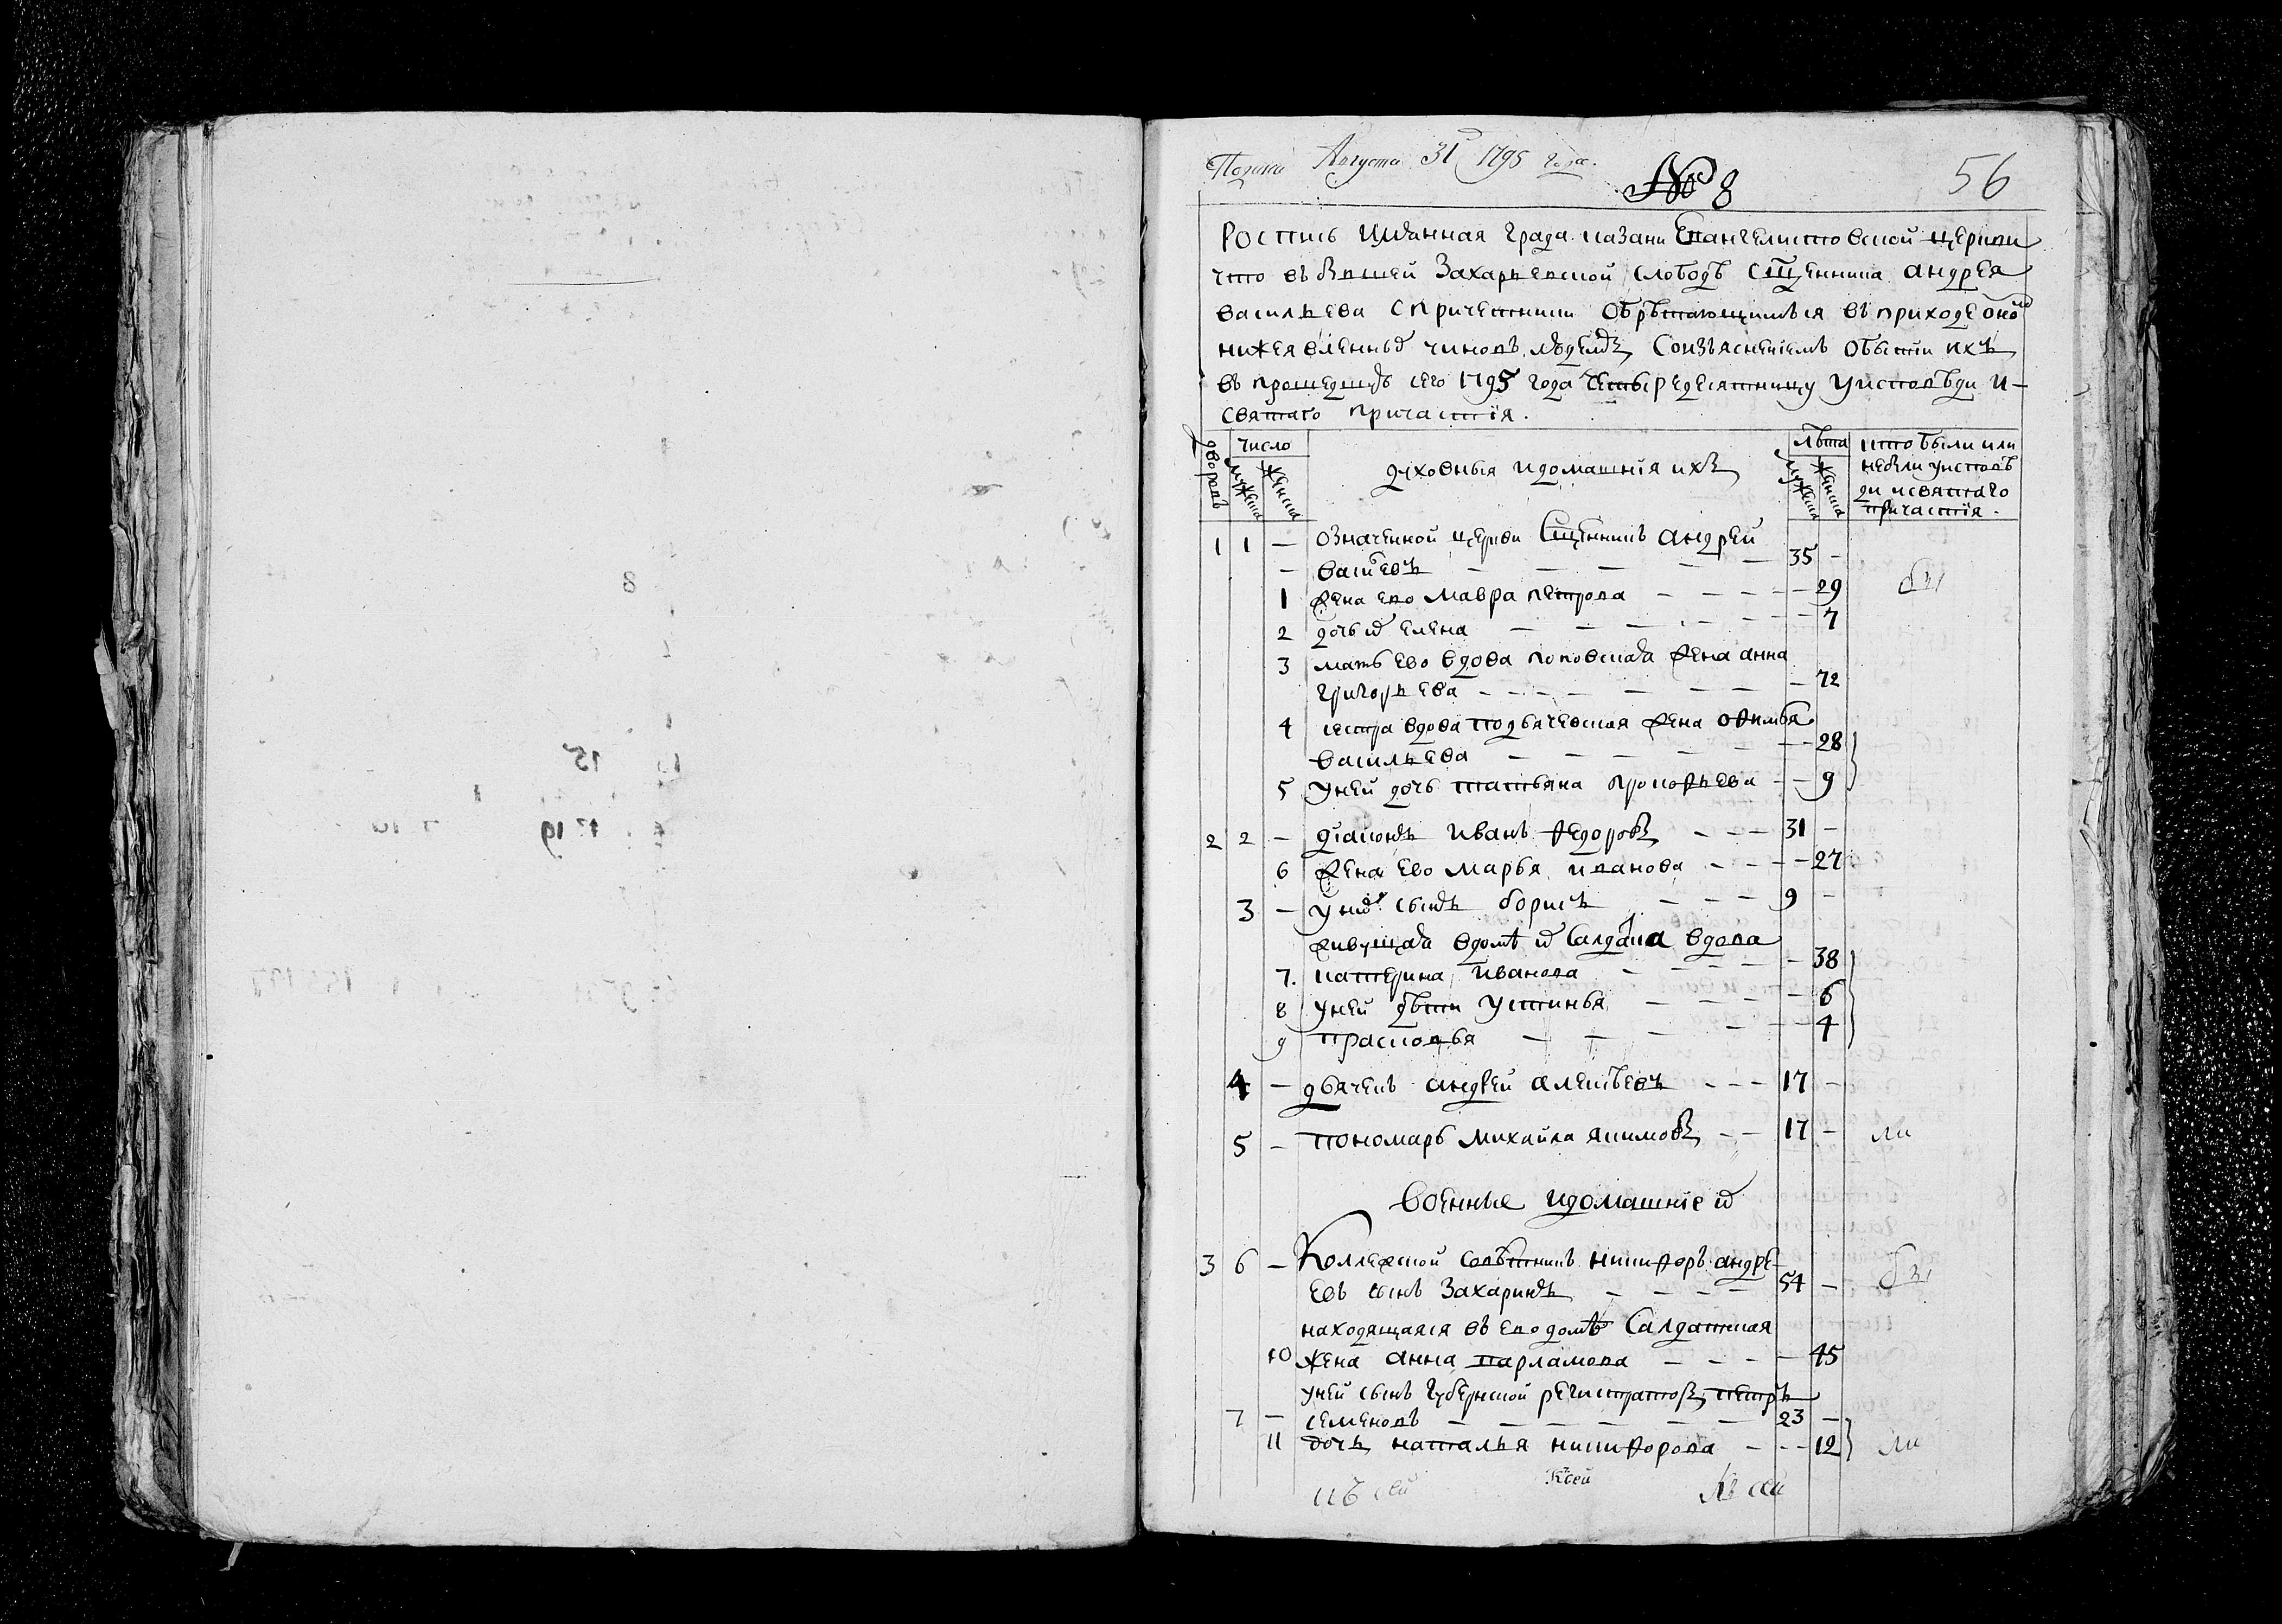 Августа 31 1795 года.
№ 8
56
Роспись града казани Евангелистовской церкви
что въ Захарьевской слободѣ Сщенника андрея
васильева спричетники Обрѣтающимся въ приходе оной
нижеявленныхъ чиновъ людемъ Соизъяснениемъ Обытии ихъ
въ прошедшую сего 1795 года Четыредесятницу уисповѣди И-
святаго причастїя.
дворовъ
число
мужеска
женска
духовныя идомашнїя ихъ
лѣта
мужеска
женска
кто были или
небыли уисповѣ
ди исвятаго
причастїя.
1 1 — означенной церкви Сщенникъ андрей
— васильевъ — 35 —
1 жена ево мавра петрова — 29
2 дочь их елена — 7
3 мать ево вдова поповская жена анна
григорьева — 72
4 сестра вдова подьячевская жена офимья
васильева — 28
5 уней дочь татьяна прокофьева — 9
2 2 — дїаконъ иванъ федоровъ — 31 —
6 жена ево марья иванова — 27
3 — уних сынъ борисъ — 9 —
живущая вдомѣ их Салдатка вдова
7. катерина иванова — 38
8 уней дѣти устинья — 6
9 прасковья — 4
4 — дьячекъ андрей алексѣевъ — 17 —
5 — пономарь михайла якимовъ — 17 — ли
военные идомашнїе их
3 6 — Коллежской совѣтникъ никифоръ андре-
евъ сынъ Захаринъ — 54 —
находящаяся въ ево домѣ Салдатская
10 жена анна варламова — 45
уней сынъ губернской регистраторъ петръ
7 — семеновъ — 23 —
11 дочь наталья никифорова — 12 ли
къ сей